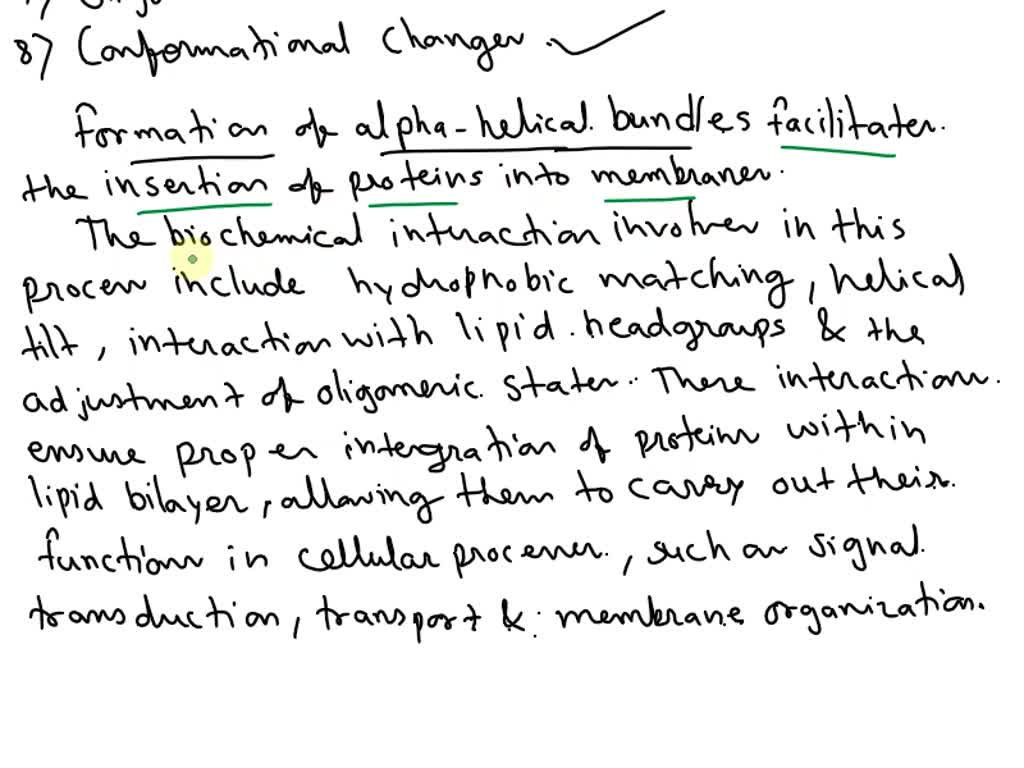 8) Conformational changes
Formation of alpha-helical bundles facilitates
the insertion of proteins into membranes.
The biochemical interaction involves in this
process include hydrophobic matching, helical
tilt, interaction with lipid headgroups & the
adjustment of oligomeric states. These interactions
ensure proper intergration of proteins within
lipid bilayer, allowing them to carry out their
functions in cellular processes, such as signal
transduction, transport & membrane organization.